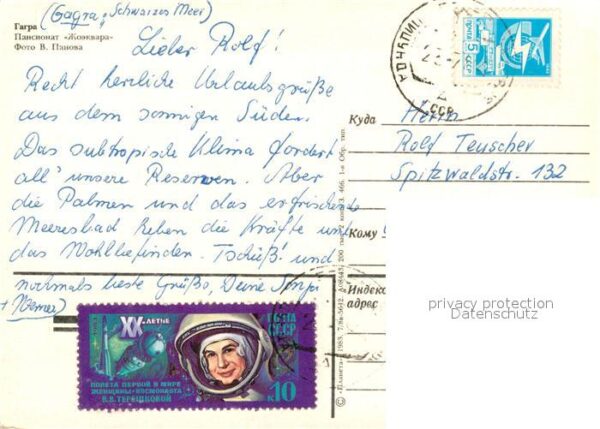 (Gagra, Schwarzes Meer)
Гагра
Пансионат «Жоэквара»
Фото В. Панова
Lieber Rolf!
Recht herzliche Urlaubsgrüße
aus dem sonnigen Süden.
Das subtropische Klima fordert
all' unsere Reserven. Aber
die Palmen und das erfrischende
Meeresbad heben die Kräfte und
das Wohlbefinden. Tschüß! und
nochmals beste Grüße, Deine
+ Werner)
почта
5
СССР
Куда
Herrn
Rolf Teuscher
Spitzwaldstr. 132
Кому
Индекс
адрес
privacy protection
Datenschutz
XX-ЛЕТИЕ
ПОЧТА
СССР
ПОЛЕТА ПЕРВОЙ В МИРЕ
ЖЕНЩИНЫ-КОСМОНАВТА
В.В.ТЕРЕШКОВОЙ
К 10